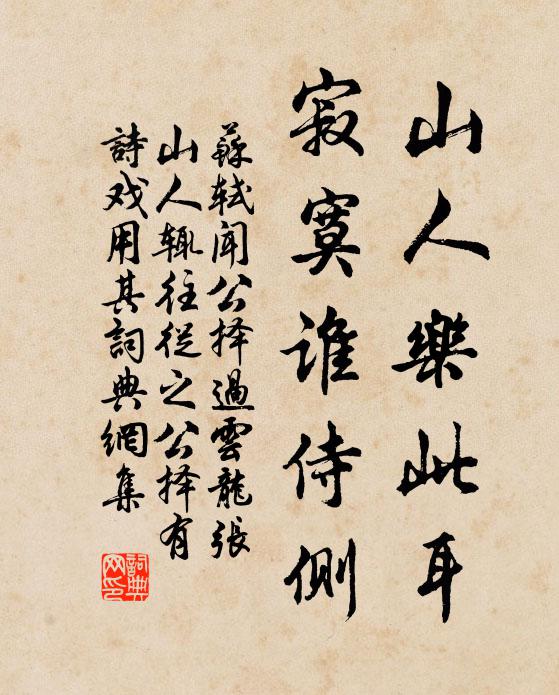 山人樂此耳
寂寞誰侍側
蘇軾聞公择過雲龍張
山人輒往從之公择有
詩戏用其詞典網集
詞典
网印